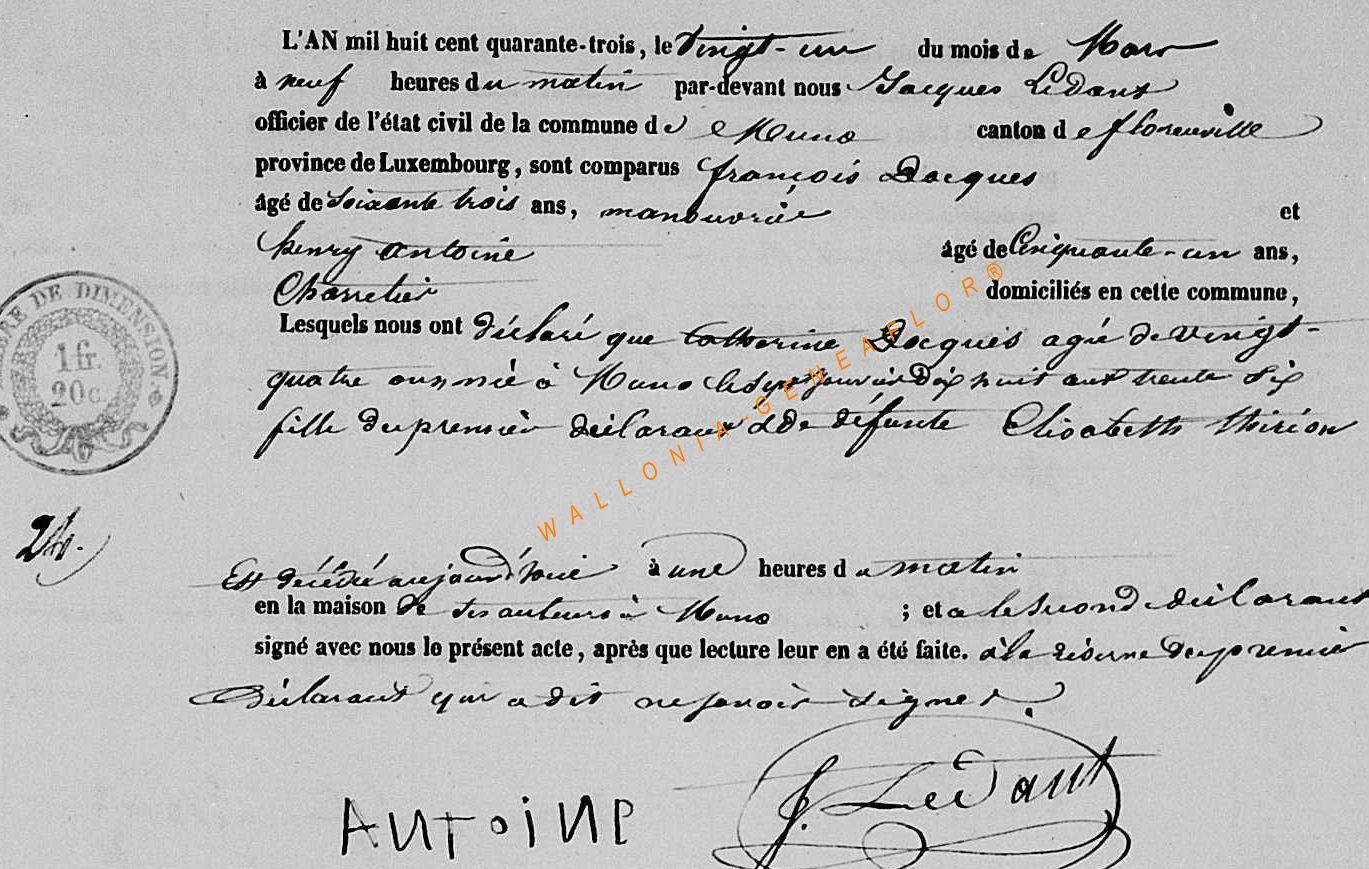 L'AN mil huit cent quarante-trois, le vingt-un du mois de Mars
à neuf heures du matin par-devant nous Jacques Lédant
officier de l'état civil de la commune de Muno canton de florenville
province de Luxembourg, sont comparus françois Dacques
âgé de soixante trois ans, manouvrié et
henry antoine âgé de Cinquante-un ans,
Charretier domiciliés en cette commune,
Lesquels nous ont déclaré que Catherine Dacques agée de vingt-
quatre ans née à Muno le dix huit cent trente six
fille du premier déclarant & de défunte Elisabeth thirion
TIMBRE DE DIMENSION.
1 fr.
20c.
24.
WALLONIA-GENEAFLOR®
Est décédée aujourd'huie à une heures du matin
en la maison de ses auteurs à Muno ; et a le second déclarant
signé avec nous le présent acte, après que lecture leur en a été faite. à la réserve du premier
Déclarant qui a dit ne savoir signer.
ANTOINE
J. Lédant